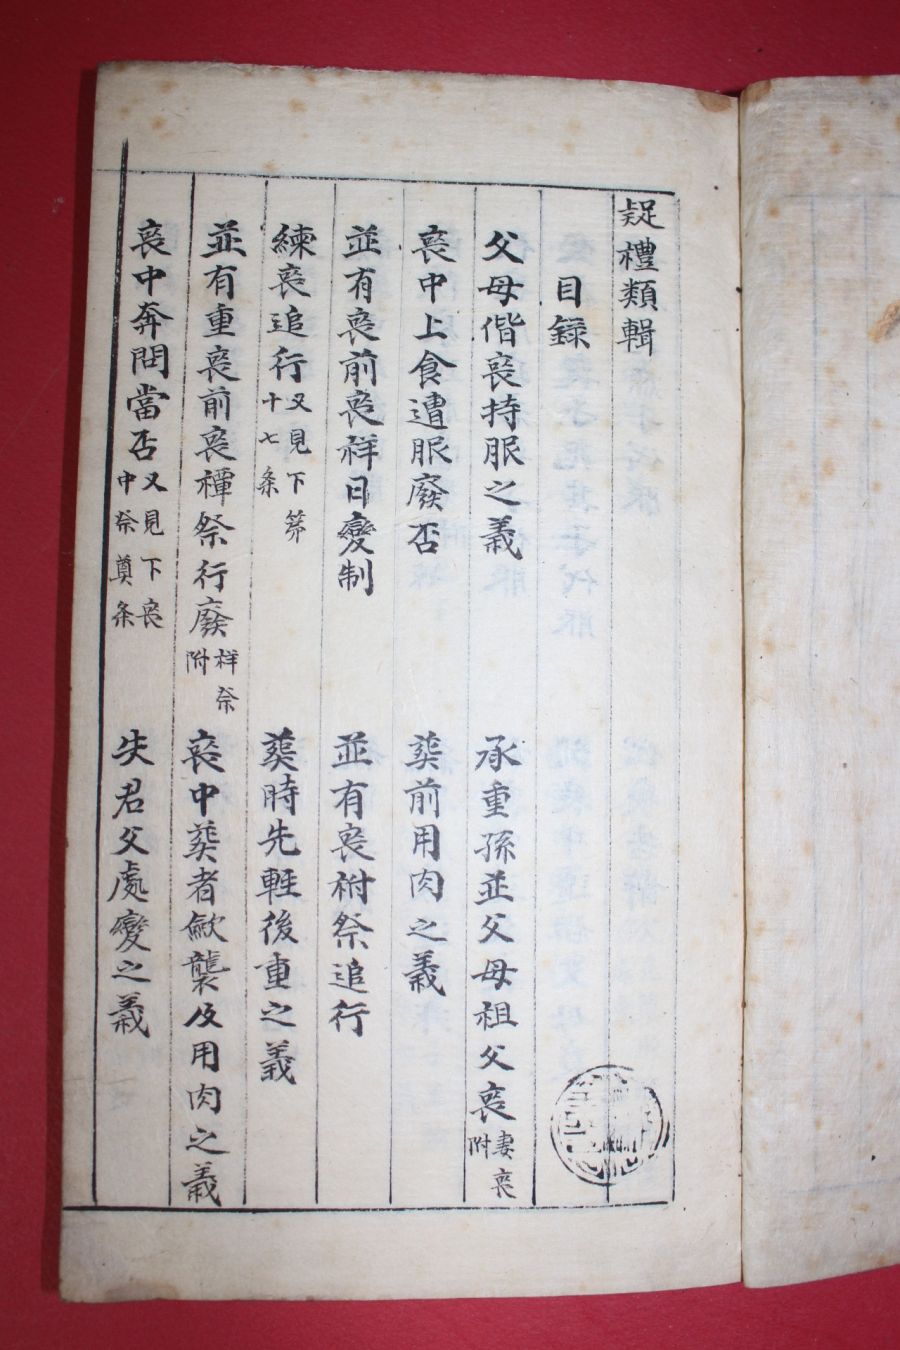 疑禮類輯
目録
父母偕喪持服之義
承重孫並父母祖父喪妻喪附
喪中上食遭服廢否
葬前用肉之義
並有喪前喪祥日變制
並有喪祔祭追行
練喪追行又見下第十七条
葬時先輕後重之義
並有重喪前喪禫祭行廢祥祭附
喪中葬者斂襲及用肉之義
喪中奔問當否又見下喪中祭奠条
失君父處變之義